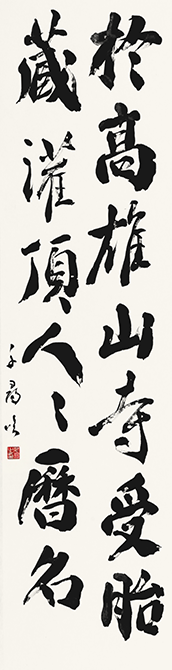 於高雄山寺受胎
藏灌頂人々曆名